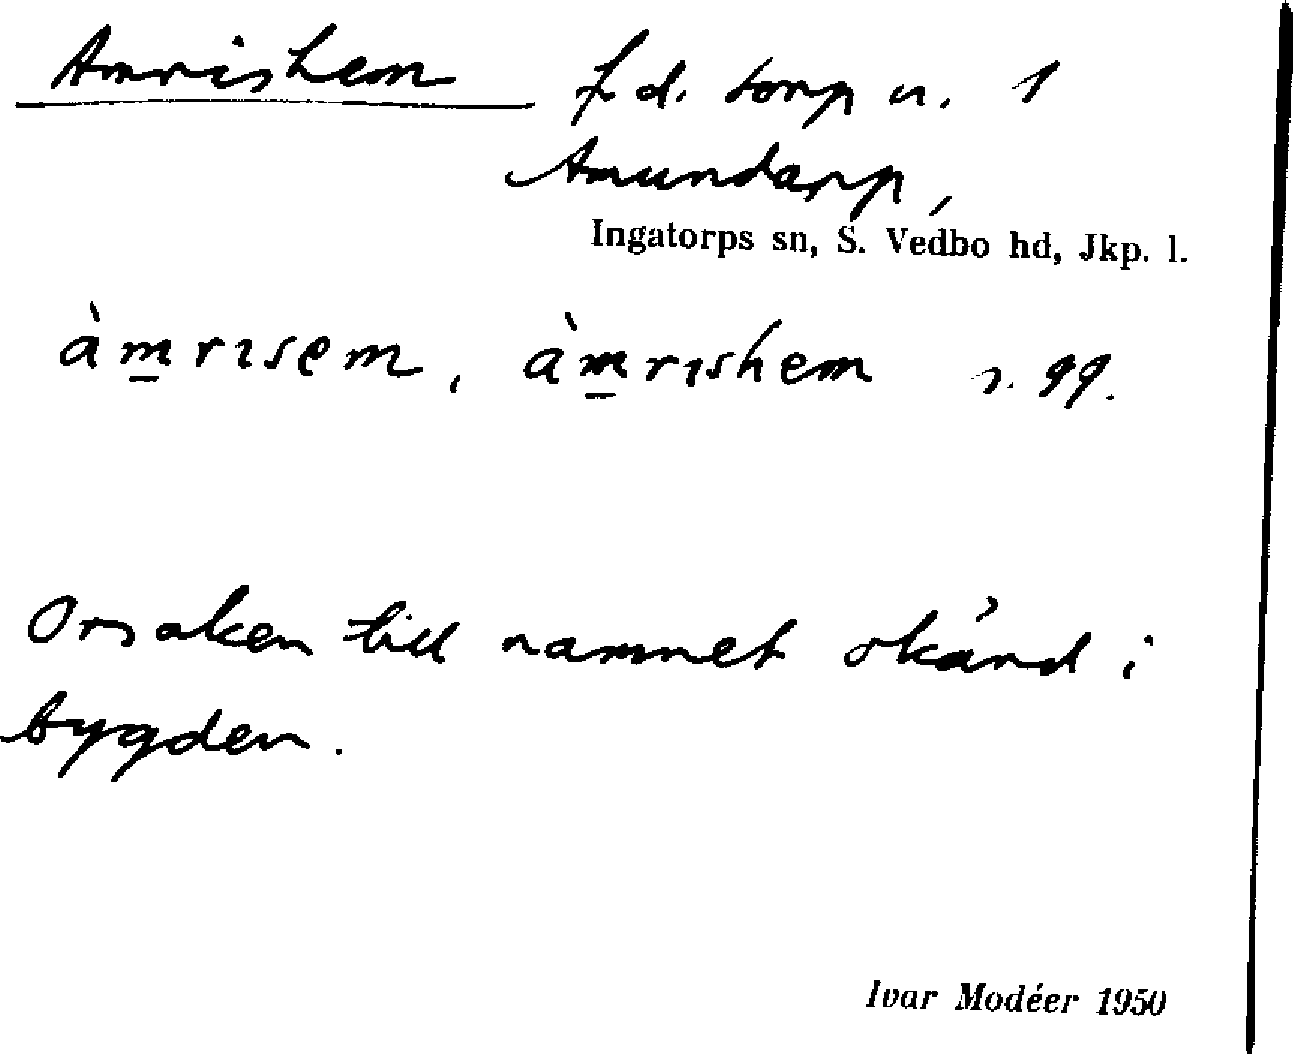 Amrishem f.d. torp u. 1
Amundarp,
Ingatorps sn, S. Vedbo hd, Jkp. l.
àm̲rısem, àm̲rıshem s. gg.
Orsaken till namnet okänd i
bygden.
Ivar Modéer 1950